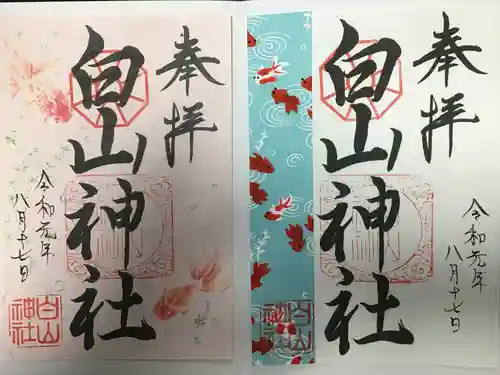 奉拝
白山神社
令和元年
八月十七日
白山
神社
奉拝
白山神社
令和元年
八月十七日
白山
神社